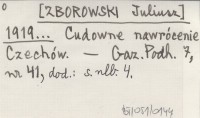 [ZBOROWSKI Juliusz]
1919... Cudowne nawrócenie
Czechów. — Gaz. Podh. 7,
nr 41, dod.: s. nlb. 4.